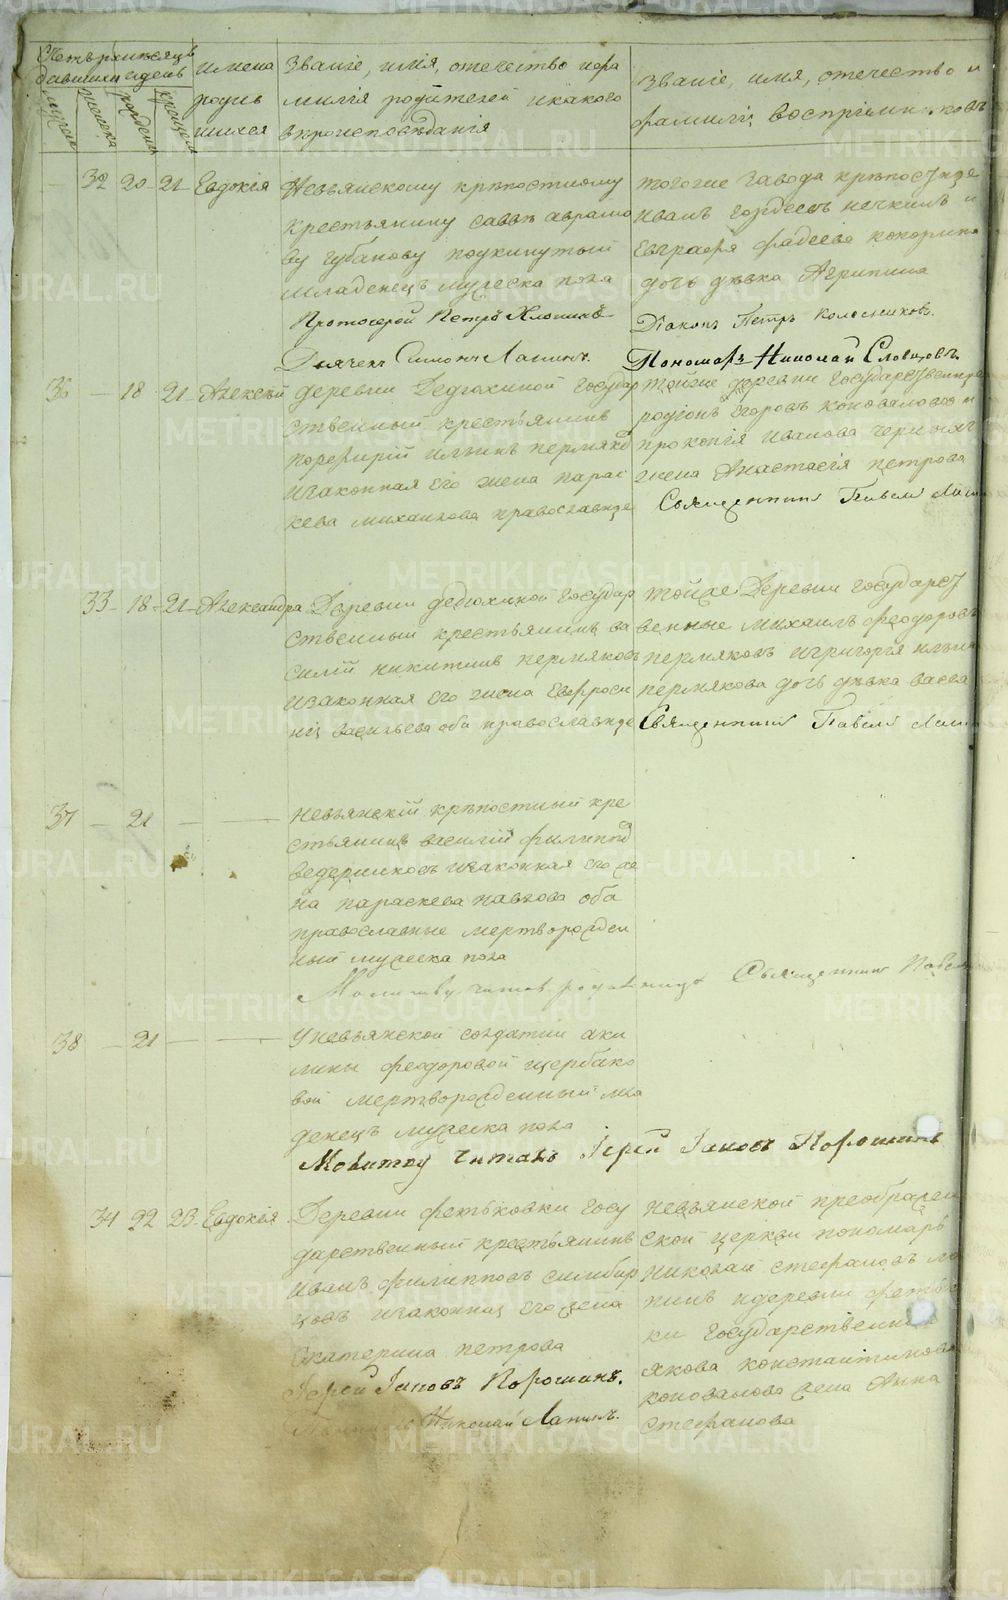 Счетъ рожившихся
мѣсяцъ и день
имена родившихся
Званіе, имя, отечество и фамилія родителей и какого вѣроисповѣданія
Званіе, имя, отечество и фамиліи воспріемниковъ
мужеска
женска
рожденія
крещенія
32 20 21 Евдокія
Невьянскому крѣпостному
крестьянину Саввѣ Аврамо
ву Губанову подкинутый
младенецъ мужеска пола
Протоіерей Петръ Хлопинъ
Дьячекъ Симонъ Лапинъ.
тогоже завода крѣпостные
Иванъ Гордеевъ Нечкинъ и
Евграфа Фадеева
дочь дѣвка Агрипина
Діаконъ Петръ Колосниковъ.
Пономарь Николай Словцовъ
36 — 18 21 Алексѣй
деревни Дедюхиной государ
ственный крестьянинъ
Порфирій Ильинъ Пермяковъ
и законная его жена Парас
кева Михайлова православные
тойже деревни государственные
Родіонъ Егоровъ Коноваловъ и
Прокопія Иванова
жена Анастасія Петрова
Священникъ Павелъ
33 18 21 Александра
Деревни Дедюхиной государ
ственный крестьянинъ Ва
силій Никитинъ Пермяковъ
и законная его жена Евфроси
нія Васильева оба православные
тойже Деревни государст
венные Михаилъ Феодоровъ
Пермяковъ и Григорія Ильина
Пермякова дочь дѣвка Васса
Священникъ Павелъ
37 — 21 — —
Невьянскій крѣпостный кре
стьянинъ Василій Филиппов
Ведерниковъ и законная его же
на Параскева Павлова оба
православные мертворожден
ный мужеска пола
Молитву читалъ родильницѣ Священникъ Павелъ
38 — 21 — —
У невьянской солдатки Аки
лины Феодоровой Щербако
вой мертворожденный мла
денецъ мужеска пола
Молитву читалъ Іерей Іаковъ Порошинъ
34 22 23 Евдокія
Деревни Фетьковки госу
дарственный крестьянинъ
Иванъ Филипповъ Симбир
цовъ и законная его жена
Екатерина Петрова
Іерей Іаковъ Порошинъ.
Николай Лапинъ.
Невьянской Преображен
ской церкви пономарь
Николай Стефановъ Ла
пинъ и деревни Фетьков
ки государственнаго
Якова Константинова
Коновалова жена Анна
Стефанова
METRIKI.GASO-URAL.RU